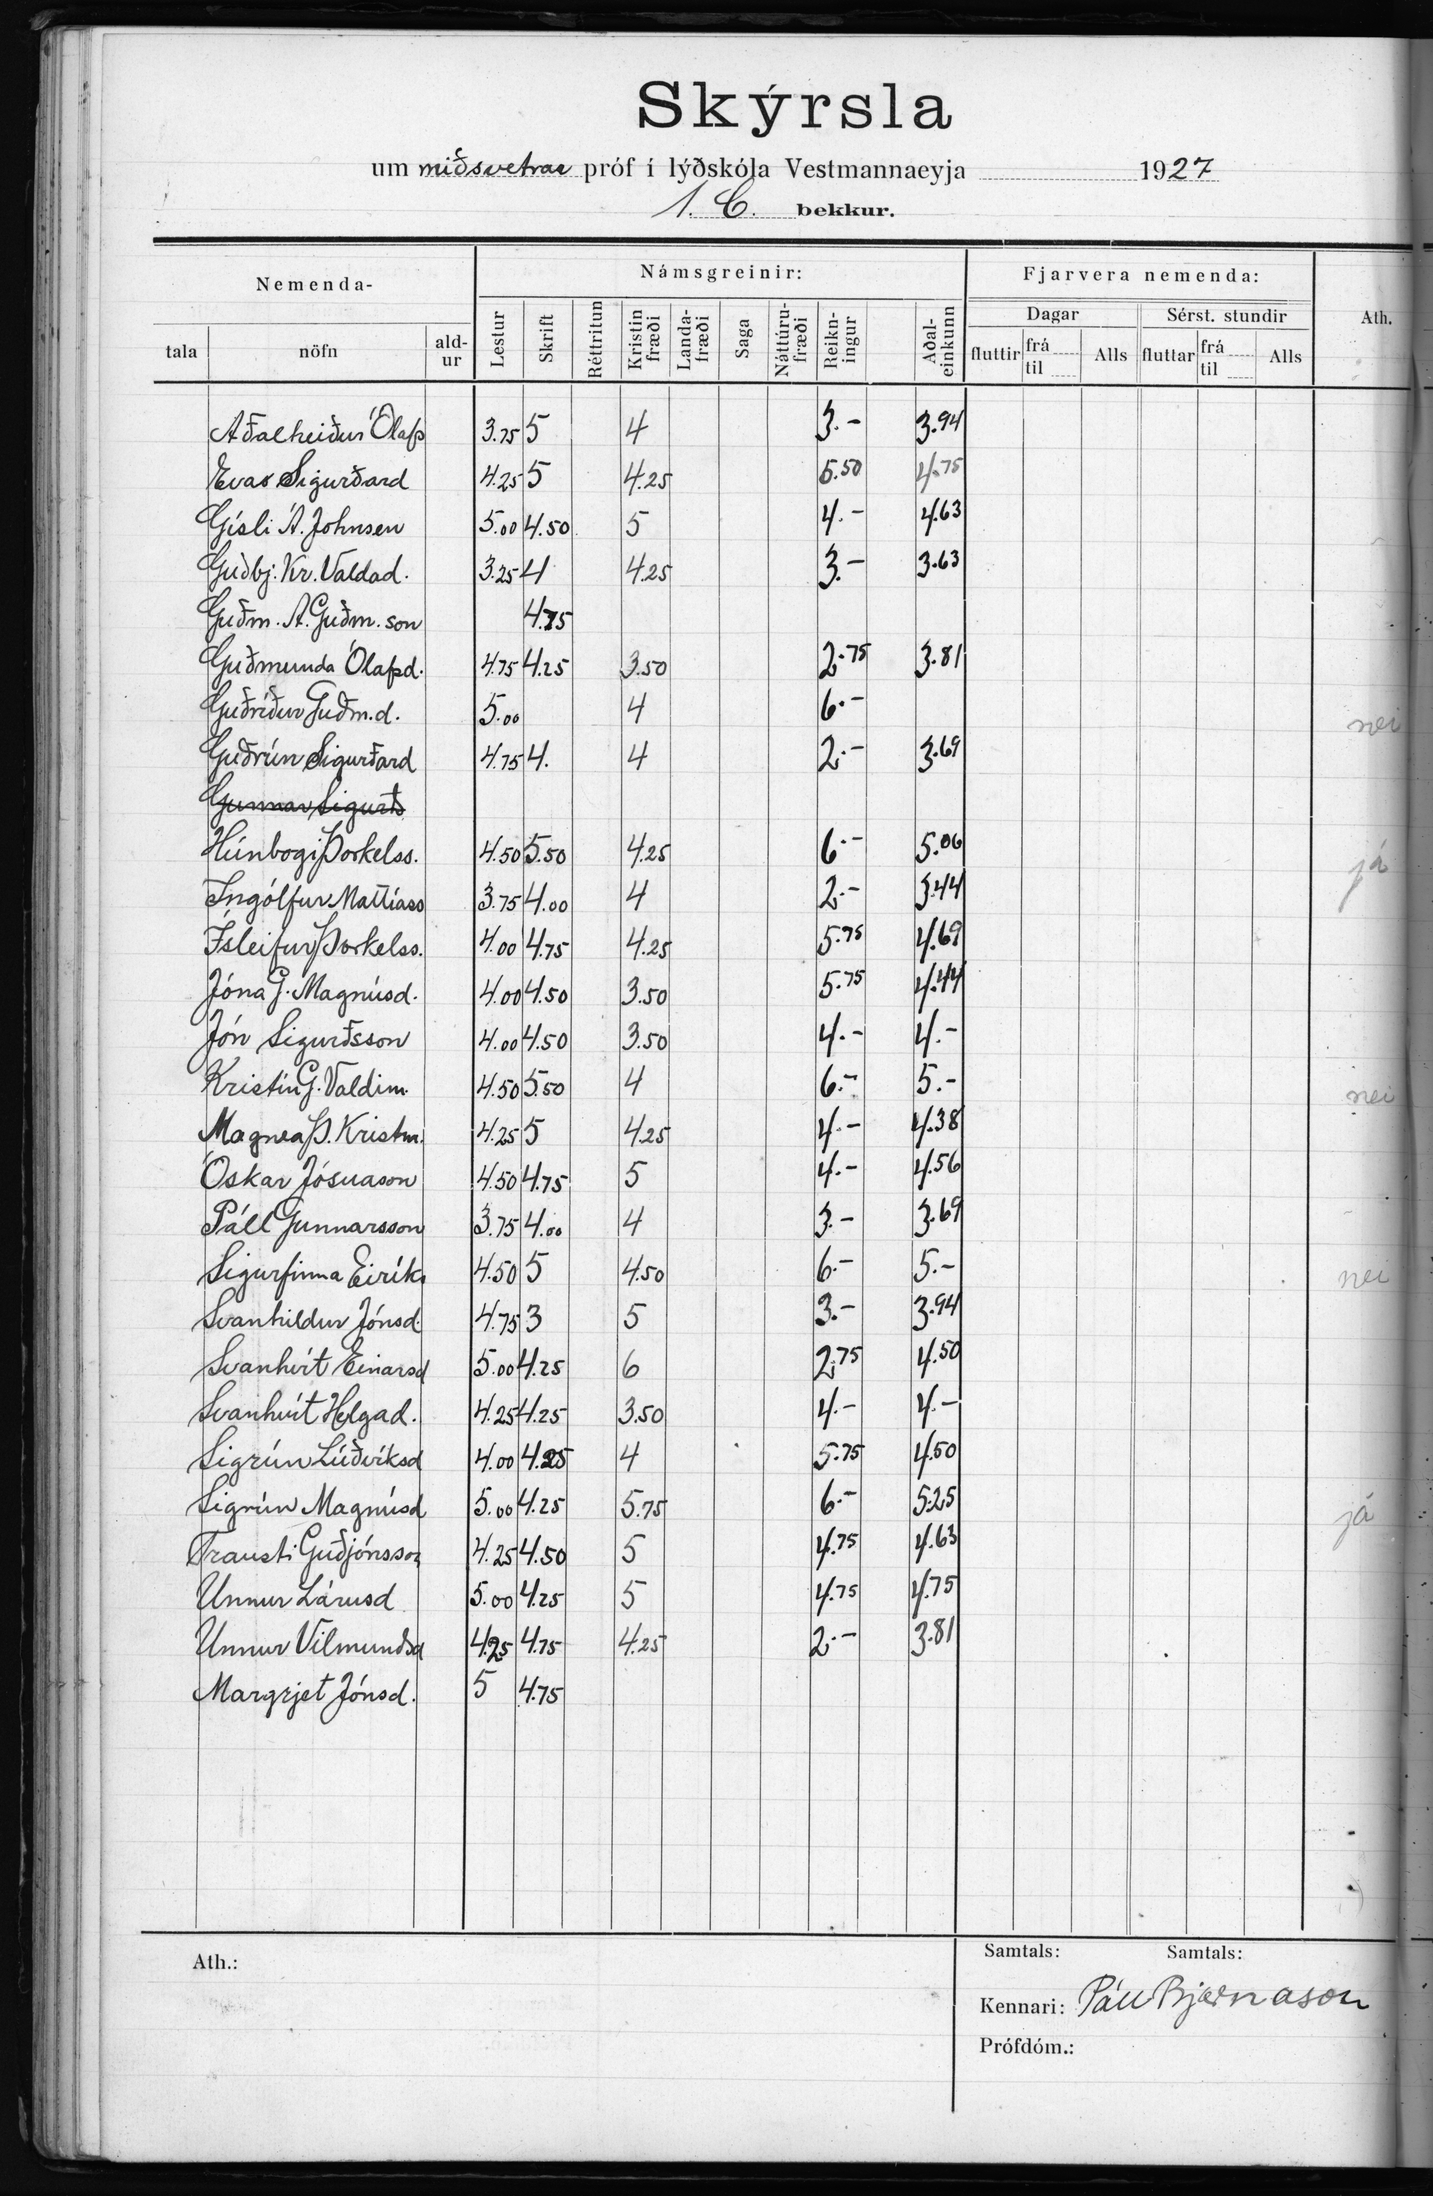 Skýrsla
um miðsvetrar próf í lýðskóla Vestmannaeyja 1927
1. C. bekkur.
Nemenda- Námsgreinir: Fjarvera nemenda: Ath.
Dagar Sérst. stundir
tala nöfn ald-ur Lestur Skrift Réttritun Kristin fræði Landa-fræði Saga Náttúru-fræði Reikn-ingur Aðal-einkunn fluttir frá til Alls fluttar frá til Alls
Aðalheiður Ólafs 3.75 5 4 3.- 3.94
Eva Sigurðard 4.25 5 4.25 5.50 4.75
Gísli Á. Johnsen 5.00 4.50 5 4.- 4.63
Guðbj. Kr. Valdad. 3.25 4 4.25 3.- 3.63
Guðm. A. Guðm.son 4.75
Guðmunda Ólafsd. 4.75 4.25 3.50 2.75 3.81
Guðríður Guðm.d. 5.00 4 6.- nei
Guðrún Sigurðard 4.75 4. 4 2.- 3.69
Gunnar Sigurðs
Húnbogi Þorkelss. 4.50 5.50 4.25 6.- 5.06 já
Ingólfur Mattíass 3.75 4.00 4 2.- 3.44
Ísleifur Þorkelss. 4.00 4.75 4.25 5.75 4.69
Jóna G. Magnúsd. 4.00 4.50 3.50 5.75 4.44
Jón Sigurðsson 4.00 4.50 3.50 4.- 4.-
Kristín G. Valdim. 4.50 5.50 4 6.- 5.- nei
Magnea Þ. Kristm. 4.25 5 4.25 4.- 4.38
Óskar Jósuason 4.50 4.75 5 4.- 4.56
Páll Gunnarsson 3.75 4.00 4 3.- 3.69
Sigurfinna Eiríks 4.50 5 4.50 6.- 5.- nei
Svanhildur Jónsd. 4.75 3 5 3.- 3.94
Svanhvít Einarsd 5.00 4.25 6 2.75 4.50
Svanhvít Helgad. 4.25 4.25 3.50 4.- 4.-
Sigrún Lúðvíksd 4.00 4.25 4 5.75 4.50
Sigrún Magnúsd 5.00 4.25 5.75 6.- 5.25 já
Trausti Guðjónsson 4.25 4.50 5 4.75 4.63
Unnur Lárusd 5.00 4.25 5 4.75 4.75
Unnur Vilmundsd 4.25 4.75 4.25 2.- 3.81
Margrjet Jónsd. 5 4.75
Ath.: Samtals: Samtals:
Kennari: Páll Bjarnason
Prófdóm.: